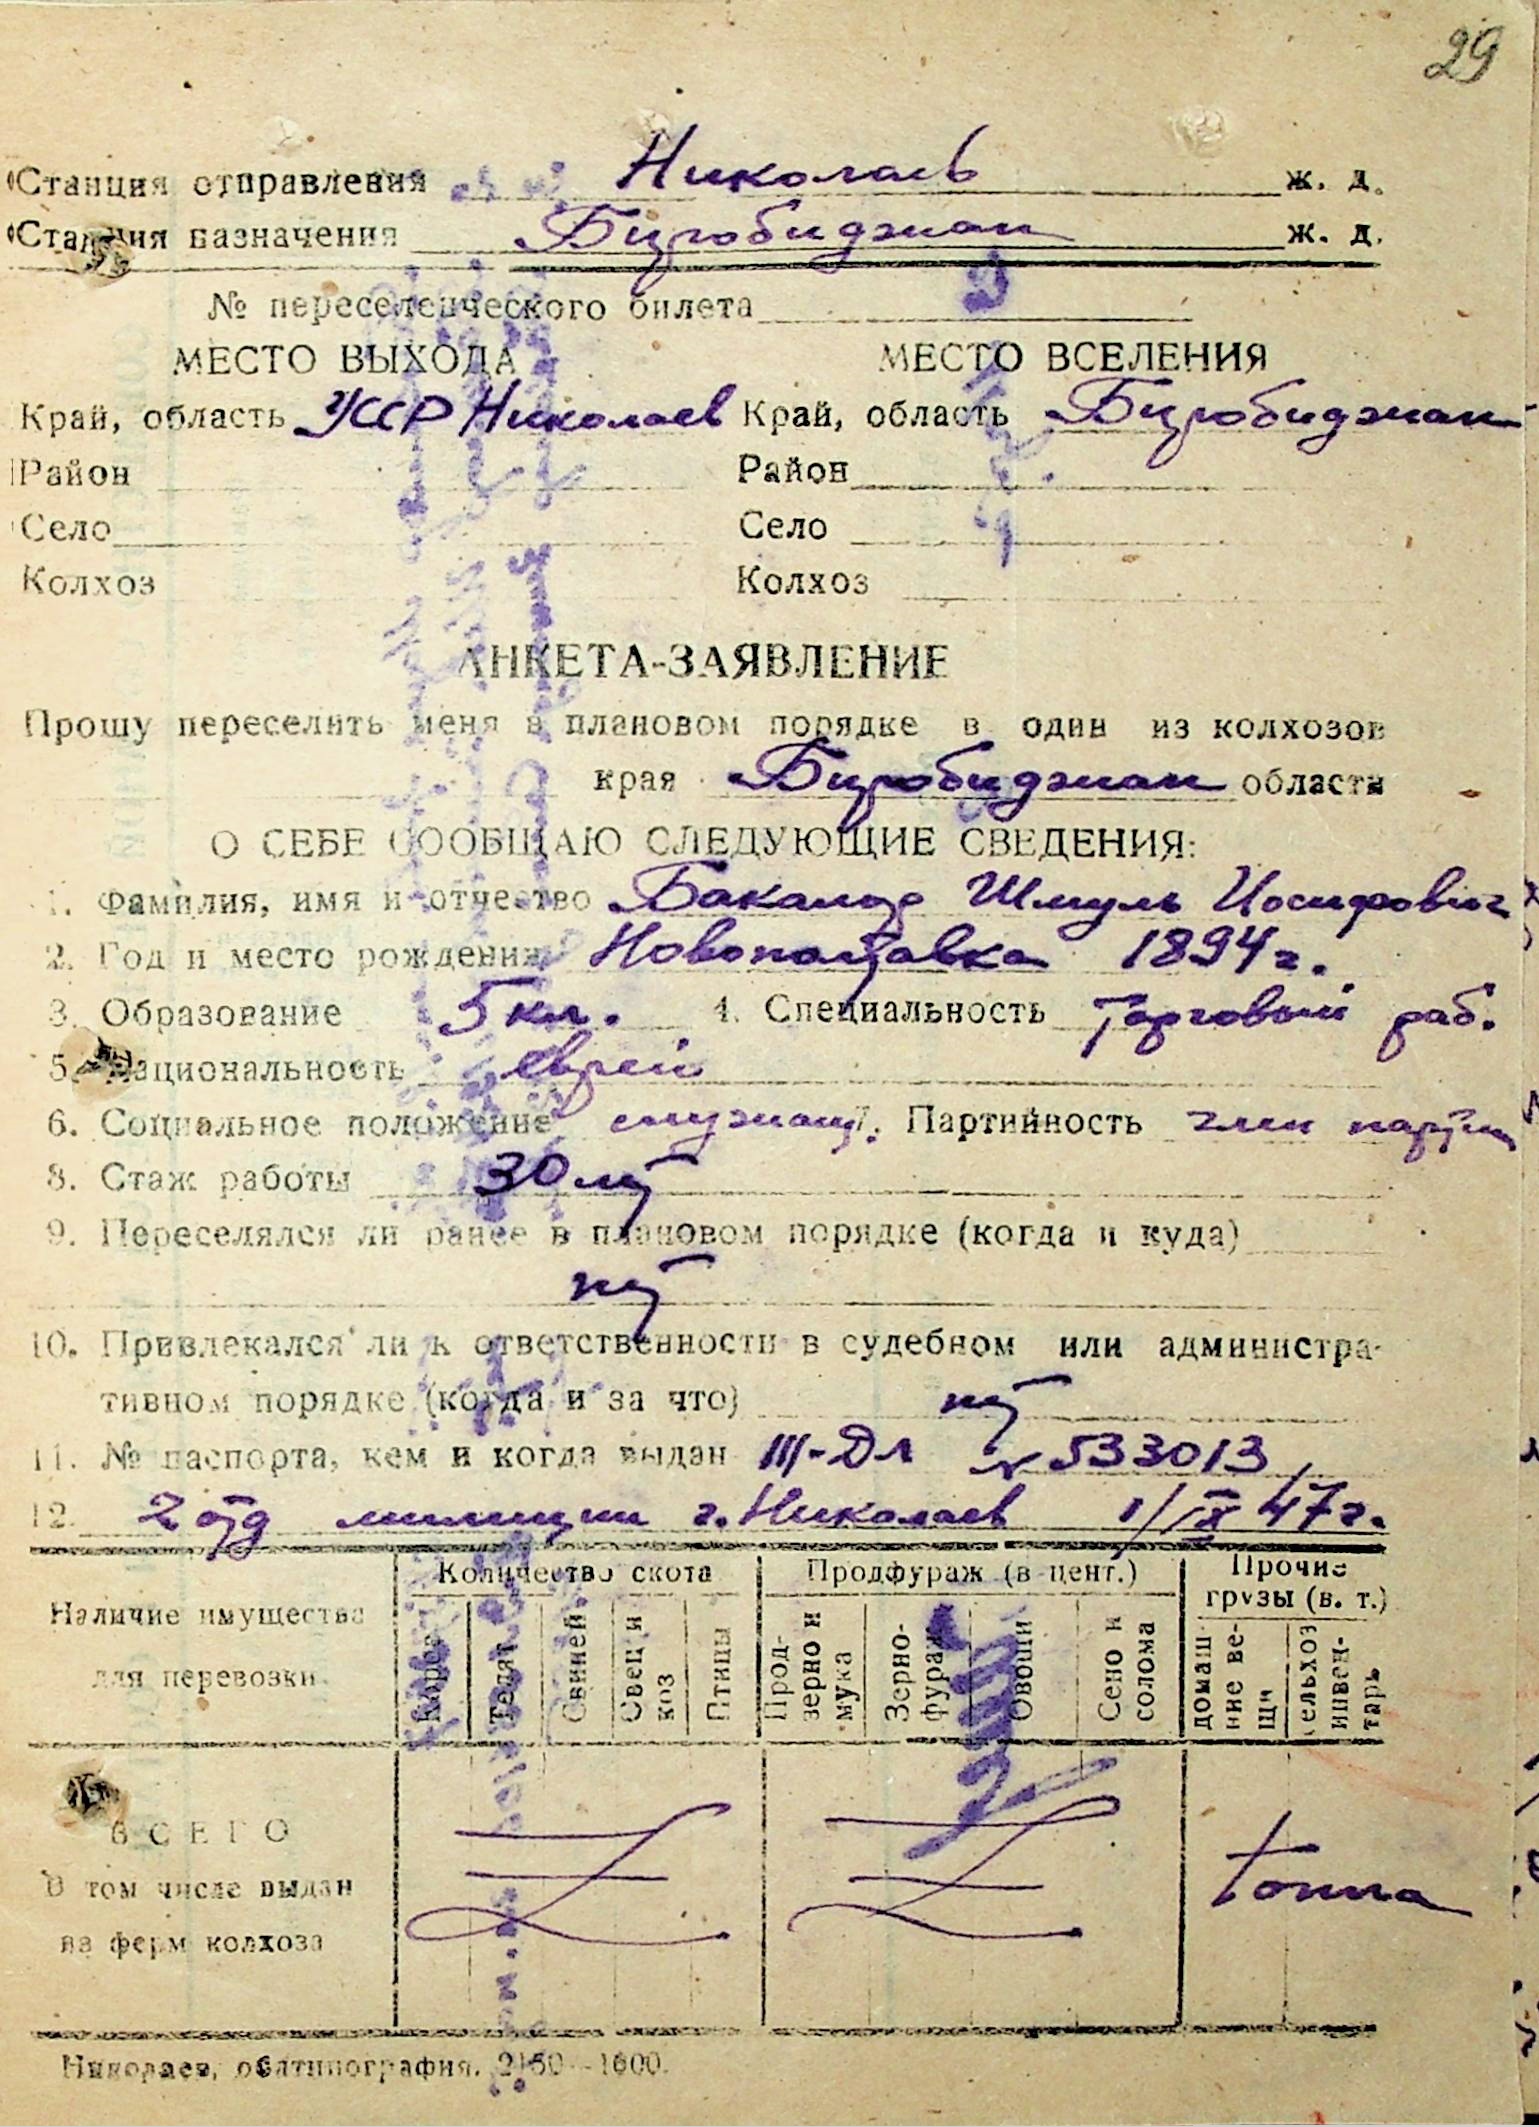 29
Станция отправления Николаев ж. д.
Станция назначения Биробиджан ж. д.
№ переселенческого билета
МЕСТО ВЫХОДА МЕСТО ВСЕЛЕНИЯ
Край, область УССР Николаев Край, область Биробиджан
Район Район
Село Село
Колхоз Колхоз
АНКЕТА-ЗАЯВЛЕНИЕ
Прошу переселить меня в плановом порядке в один из колхозов
края Биробиджан области
О СЕБЕ СООБЩАЮ СЛЕДУЮЩИЕ СВЕДЕНИЯ:
1. Фамилия, имя и отчество Бакаляр Шмуль Иосифович
2. Год и место рождения Новополтавка 1894 г.
3. Образование 5 кл. 4. Специальность Торговый раб.
5. Национальность еврей
6. Социальное положение служащ 7. Партийность член партии
8. Стаж работы 30 лет
9. Переселялся ли ранее в плановом порядке (когда и куда)
нет
10. Привлекался ли к ответственности в судебном или администра-
тивном порядке (когда и за что) нет
11. № паспорта, кем и когда выдан III-ДЛ № 533013
12. 2 отд милиции г. Николаев 1/IX 47 г.
Наличие имущества для перевозки
Количество скота Продфураж (в цент.) Прочие грузы (в. т.)
Коров Телят Свиней Овец и коз Птицы Прод-зерно и мука Зерно-фураж Овощи Сено и солома домаш-ние ве-щи сельхоз инвен-тарь
ВСЕГО
В том числе выдан тонна
из ферм колхоза
Николаев, облтипография. 2150—1600.